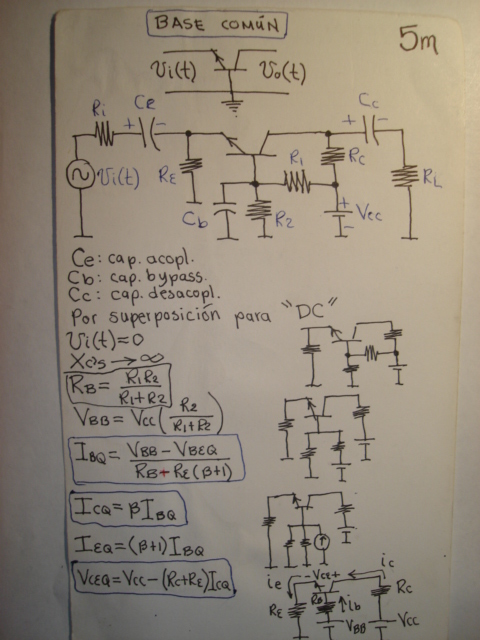 BASE COMÚN
5m
Vi(t) Vo(t)
Ri Ce + − Cc + −
Vi(t) RE R1 Rc RL
Cb R2 + Vcc −
Ce: cap. acopl.
Cb: cap. bypass.
Cc: cap. desacopl.
Por superposición para "DC"
Vi(t)=0
Xc's → ∞
RB = R1R2 / R1+R2
VBB = Vcc (R2 / R1+R2)
IBQ = VBB − VBEQ / RB + RE(β+1)
ICQ = βIBQ
IEQ = (β+1) IBQ
VCEQ = Vcc − (Rc+RE)ICQ
− VCE + ic
ie Rc
RE RB ib
VBB Vcc